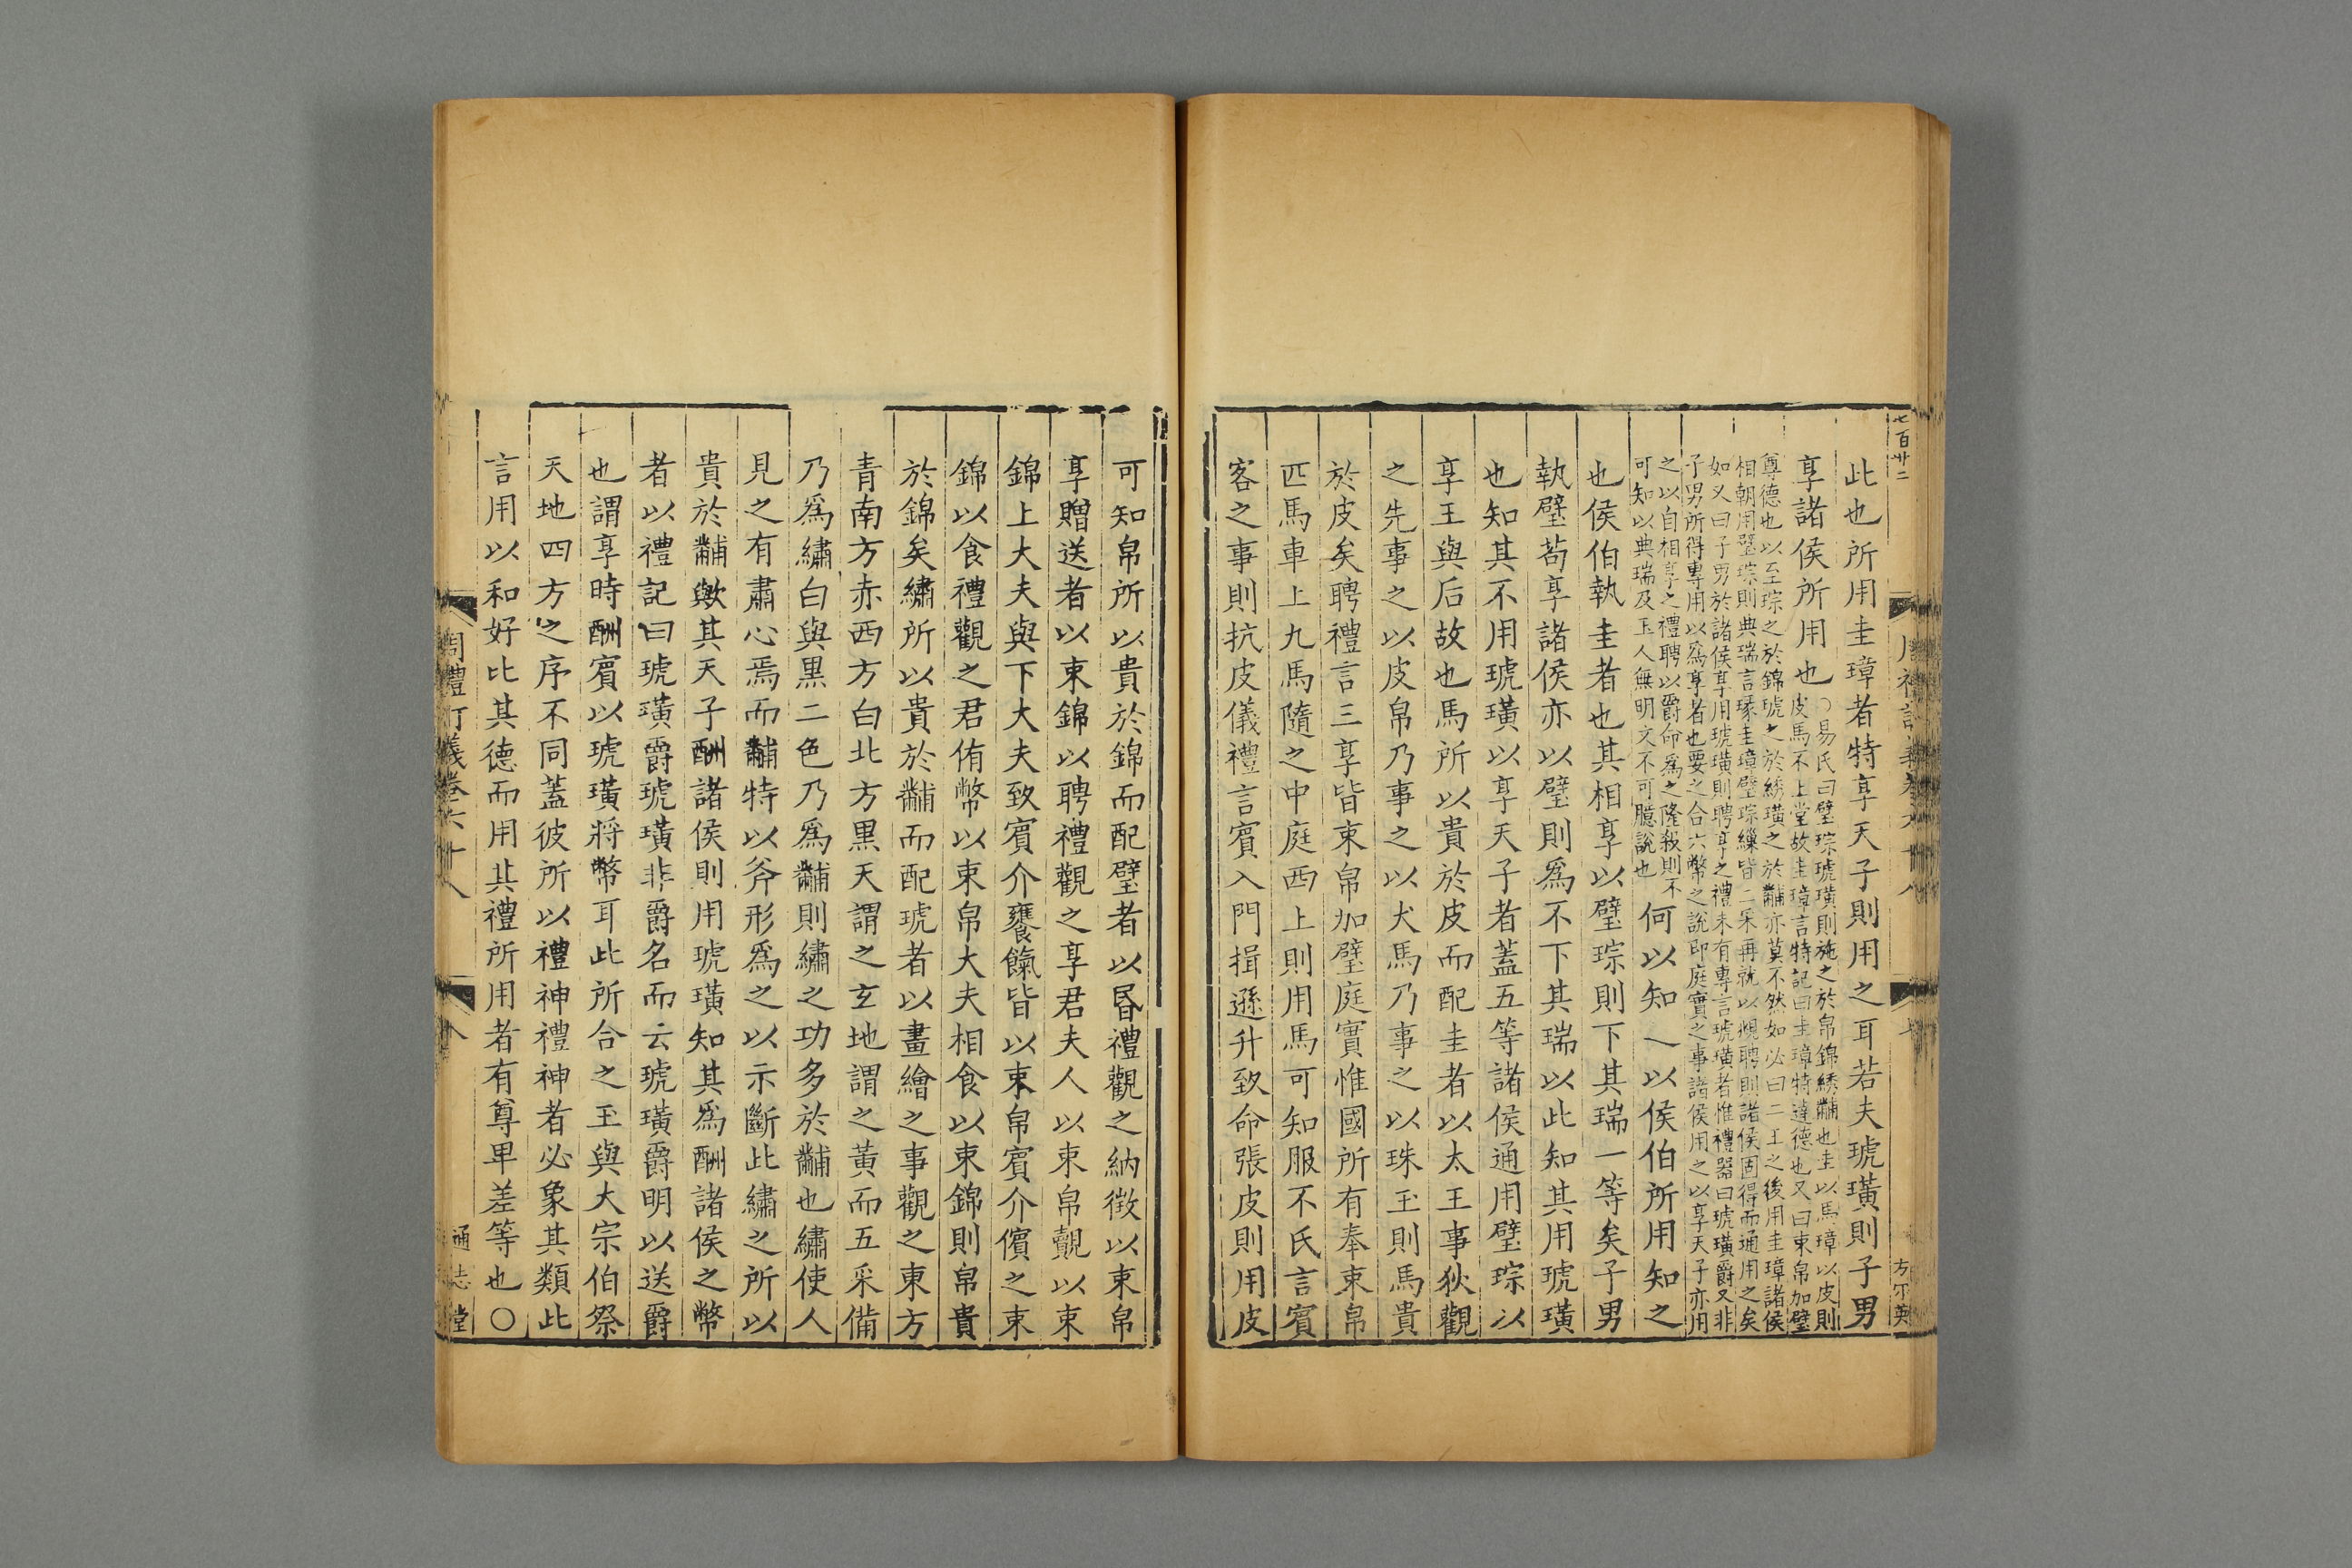 七百卅二
此也所用圭璋者特享天子則用之耳若夫琥璜則子男
享諸侯所用也
○易氏曰璧琮琥璜則施之於帛錦綉黼也圭以馬璋以皮則
皮馬不上堂故圭璋言特記曰圭璋特達德也又曰束帛加璧
尊德也以至琮之於錦琥之於綉璜之於黼亦莫不然如必曰二王之後用圭璋諸侯
相朝用璧琮則典瑞言瑑圭璋璧琮繅皆二采再就以覜聘則諸侯固得而通用之矣
如又曰子男於諸侯享用琥璜則聘享之禮未有專言琥璜者惟禮器曰琥璜爵又非
子男所得專用以爲享者也要之合六幣之說即庭實之事諸侯用之以享天子亦用
之以自相享之禮聘以爵命爲之隆殺則不
可知以典瑞及玉人無明文不可臆說也
何以知之以侯伯所用知之
也侯伯執圭者也其相享以璧琮則下其瑞一等矣子男
執璧苟享諸侯亦以璧則爲不下其瑞以此知其用琥璜
也知其不用琥璜以享天子者蓋五等諸侯通用璧琮以
享王與后故也馬所以貴於皮而配圭者以太王事狄觀
之先事之以皮帛乃事之以犬馬乃事之以珠玉則馬貴
於皮矣聘禮言三享皆束帛加璧庭實惟國所有奉束帛
匹馬車上九馬隨之中庭西上則用馬可知服不氏言賓
客之事則抗皮儀禮言賓入門揖遜升致命張皮則用皮
方爾英
可知帛所以貴於錦而配璧者以昏禮觀之納徵以束帛
享贈送者以束錦以聘禮觀之享君夫人以束帛覿以束
錦上大夫與下大夫致賓介饔餼皆以束帛賓介儐之束
錦以食禮觀之君侑幣以束帛大夫相食以束錦則帛貴
於錦矣繡所以貴於黼而配琥者以畫繪之事觀之東方
青南方赤西方白北方黑天謂之玄地謂之黃而五采備
乃爲繡白與黑二色乃爲黼則繡之功多於黼也繡使人
見之有肅心焉而黼特以斧形爲之以示斷此繡之所以
貴於黼歟其天子酬諸侯則用琥璜知其爲酬諸侯之幣
者以禮記曰琥璜爵琥璜非爵名而云琥璜爵明以送爵
也謂享時酬賓以琥璜將幣耳此所合之玉與大宗伯祭
天地四方之序不同蓋彼所以禮神禮神者必象其類此
言用以和好比其德而用其禮所用者有尊卑差等也○
周禮訂義卷六十八
八
通志堂